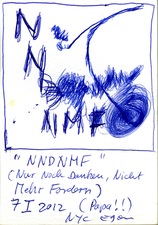 N
N
NMF
"NNDNMF"
(Nur Noch Danken, Nicht
Mehr Fordern)
7 I 2012 (Papa!!)
NYC